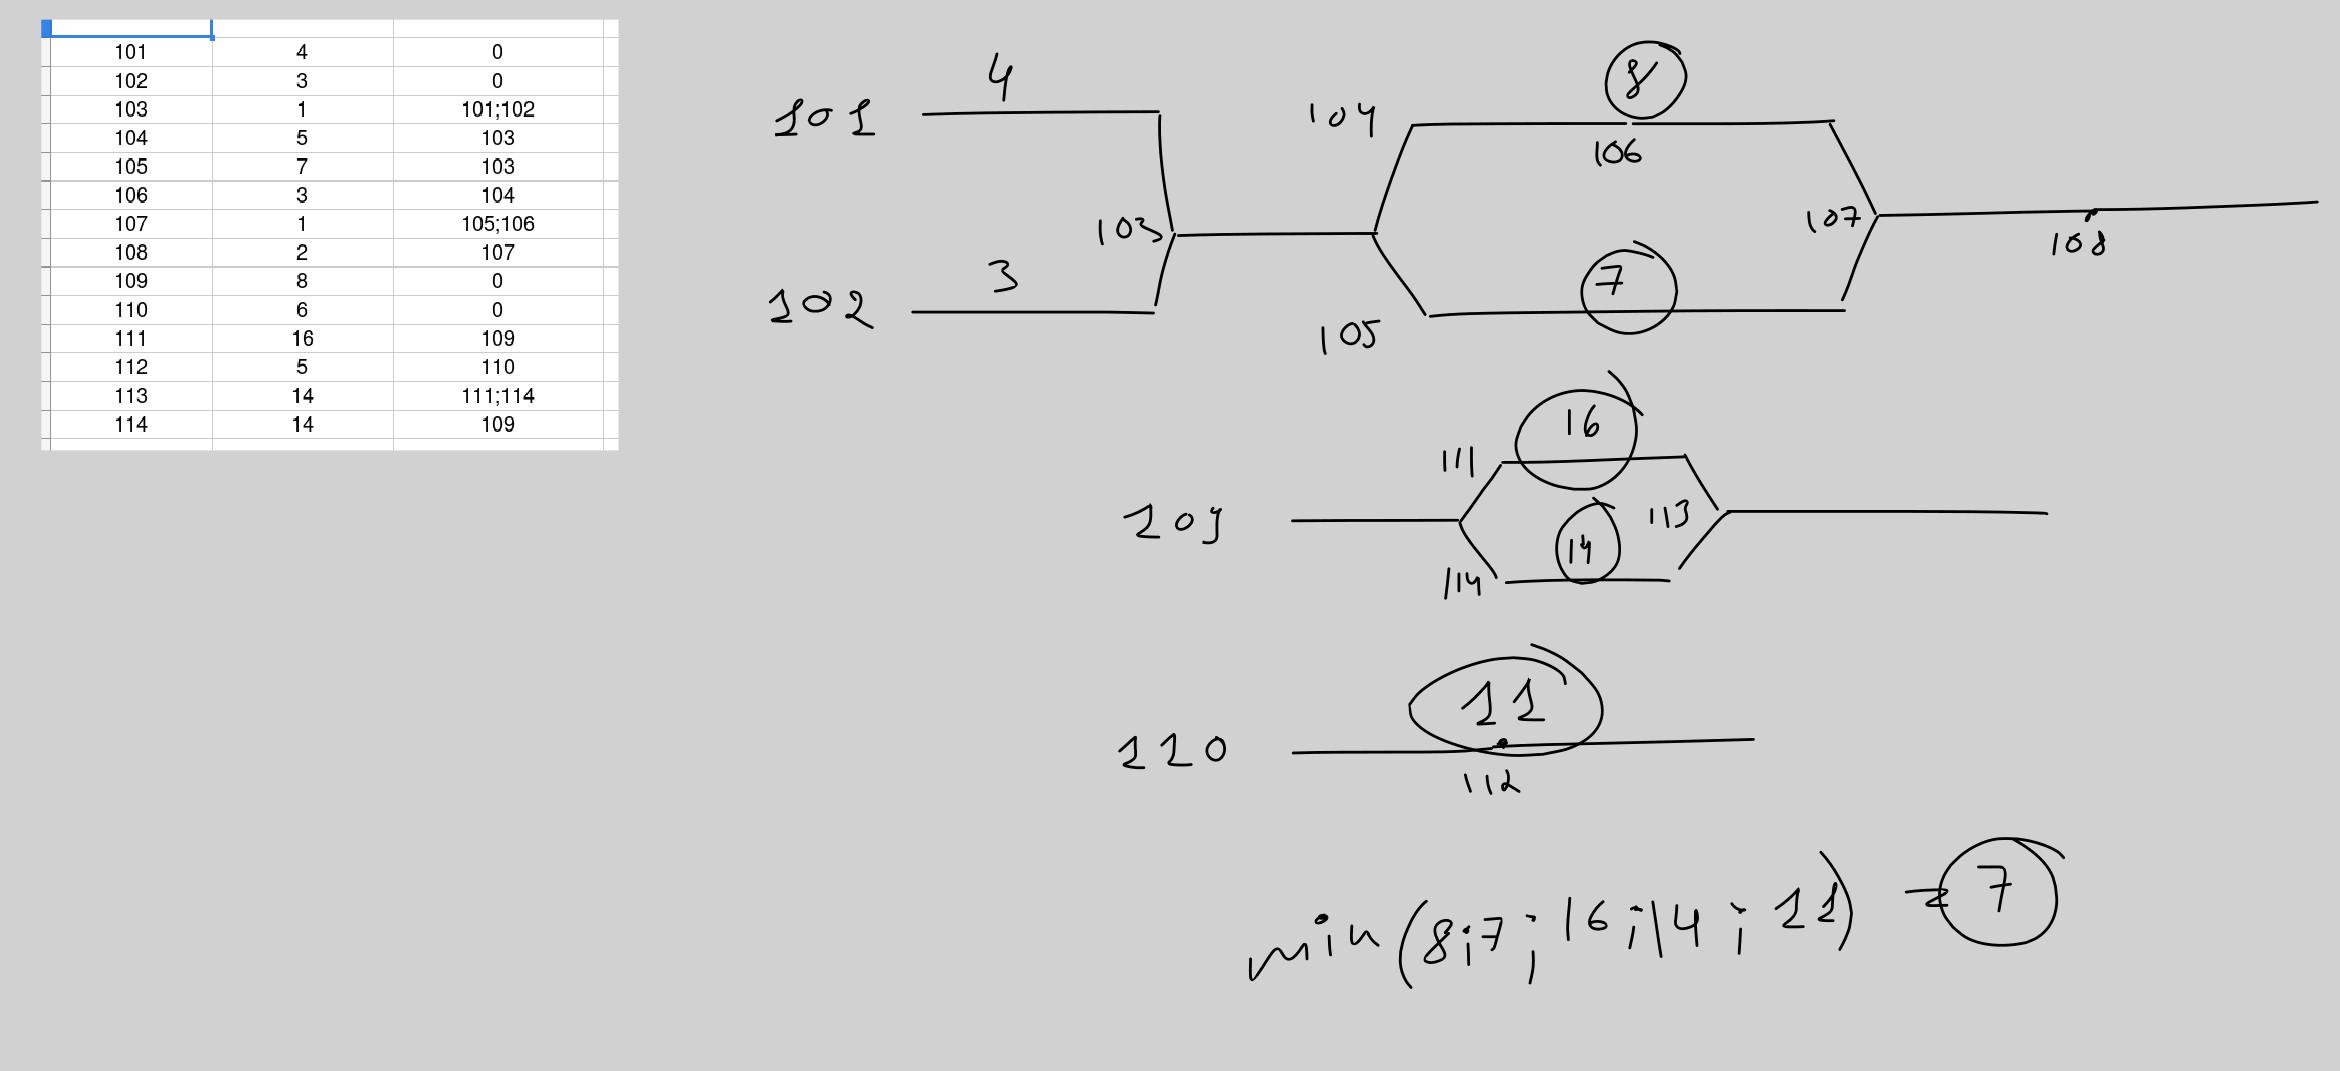 101 4 0
102 3 0
103 1 101;102
104 5 103
105 7 103
106 3 104
107 1 105;106
108 2 107
109 8 0
110 6 0
111 16 109
112 5 110
113 14 111;114
114 14 109
4
8
101
104
106
103
107
108
3
7
102
105
16
111
109
113
14
114
11
110
112
min(8;7;16;14;11) = 7